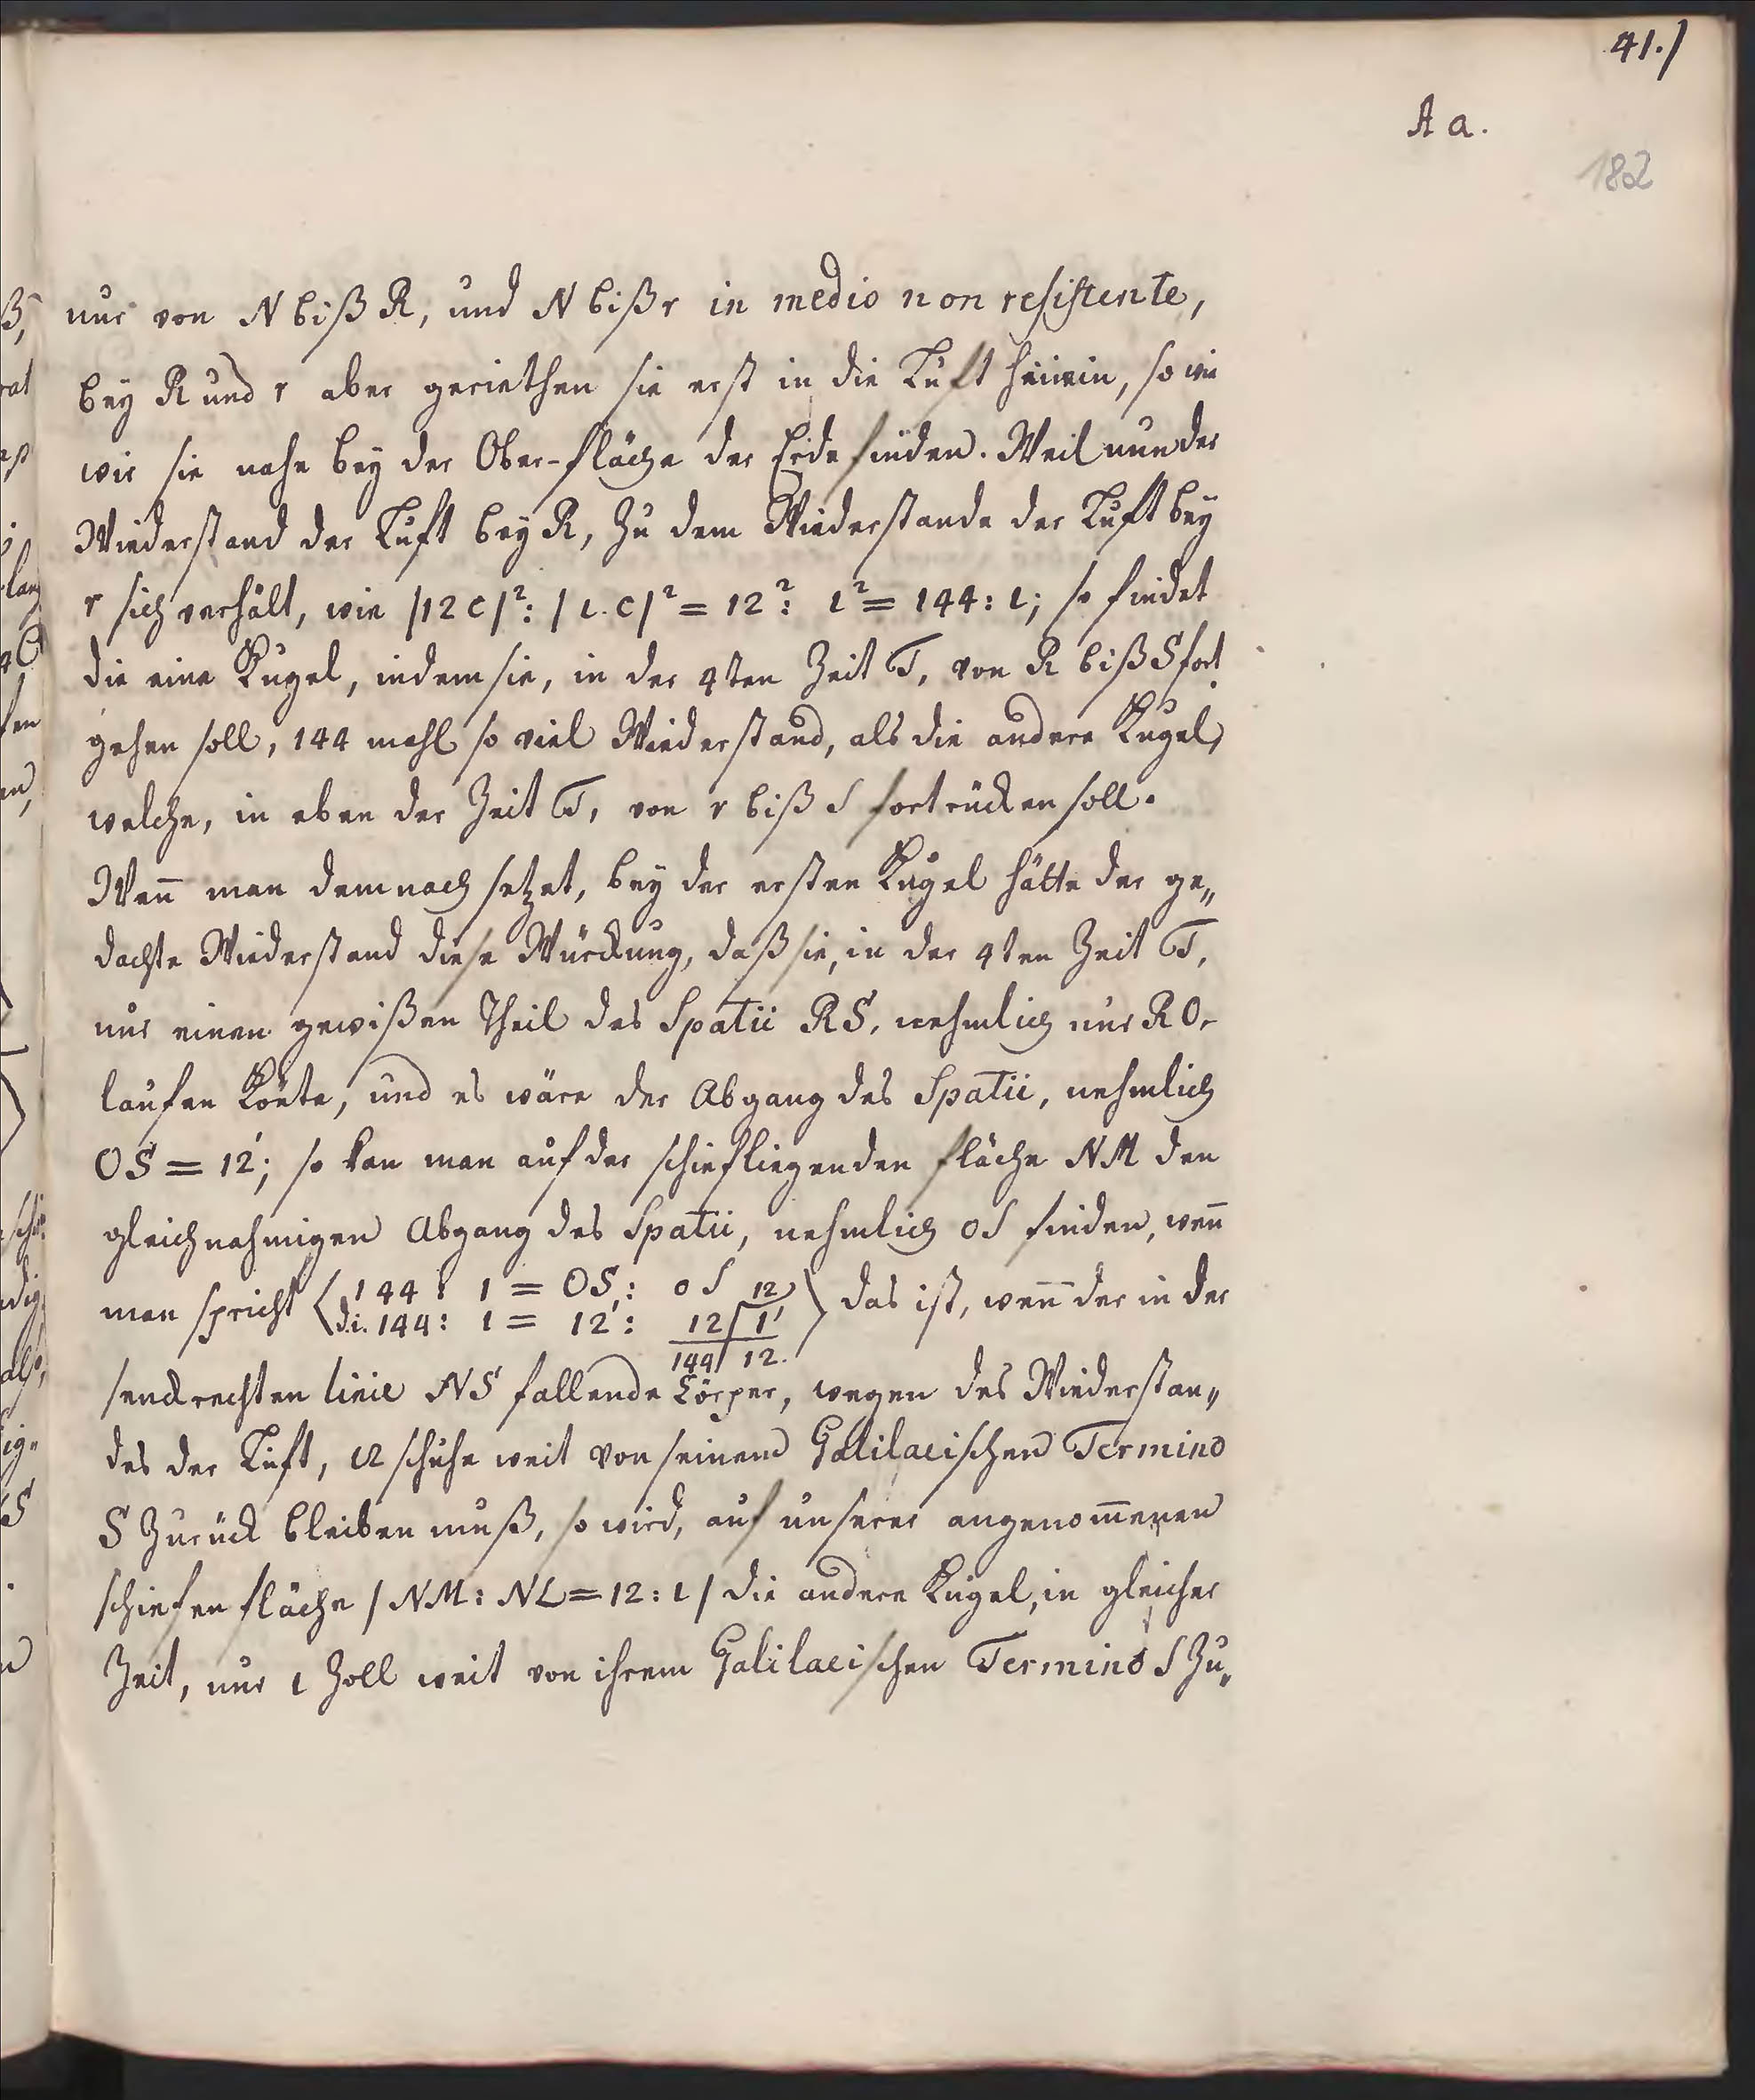 41.)
A a.
182
nur von N biß R, und N biß r in medio non resistente,
bey R und r aber geriethen sie erst in die Luft hinein, so wie
wir sie nahe bey der Ober-fläche der Erde finden. Weil nun der
Wiederstand der Luft bey R, zu dem Wiederstande der Luft bey
r sich verhält, wie |12 c|²: | 1. c|² = 12²: 1² = 144: 1; so findet
die eine Kugel, indem sie, in der 4ten Zeit T, von R biß S fort
gehen soll, 144 mahl so viel Wiederstand, als die andere Kugel,
welche, in eben der Zeit T, von r biß s fortrücken soll.
Wen̅ man demnach setzet, bey der ersten Kugel hätte der ge„
dachte Wiederstand diese Würckung, daß sie, in der 4ten Zeit T,
nur einen gewißen Theil des Spatii RS, nehmlich nur RO,
laufen könte, und es wäre der Abgang des Spatii, nehmlich
OS = 12'; so kan man auf der schiefliegenden fläche NM den
gleichnahmigen Abgang des Spatii, nehmlich os finden, wen̅
man spricht ⟨ 144 : 1 = OS : o s 12 ⟩ das ist, wen̅ der in der
d.i. 144 : 1 = 12' : 12 | 1'
144 | 12.
senckrechten linie NS fallende Cörper, wegen des Wiederstan„
des der Luft, 12 schuhe weit von seinem Galilaeischen Termino
S zurück bleiben muß, so wird, auf unserer angenom̅enen
schiefen fläche | NM : NL = 12 : 1 | die andere Kugel, in gleicher
Zeit, nur 1 Zoll weit von ihrem Galilaeischen Termino s zu„